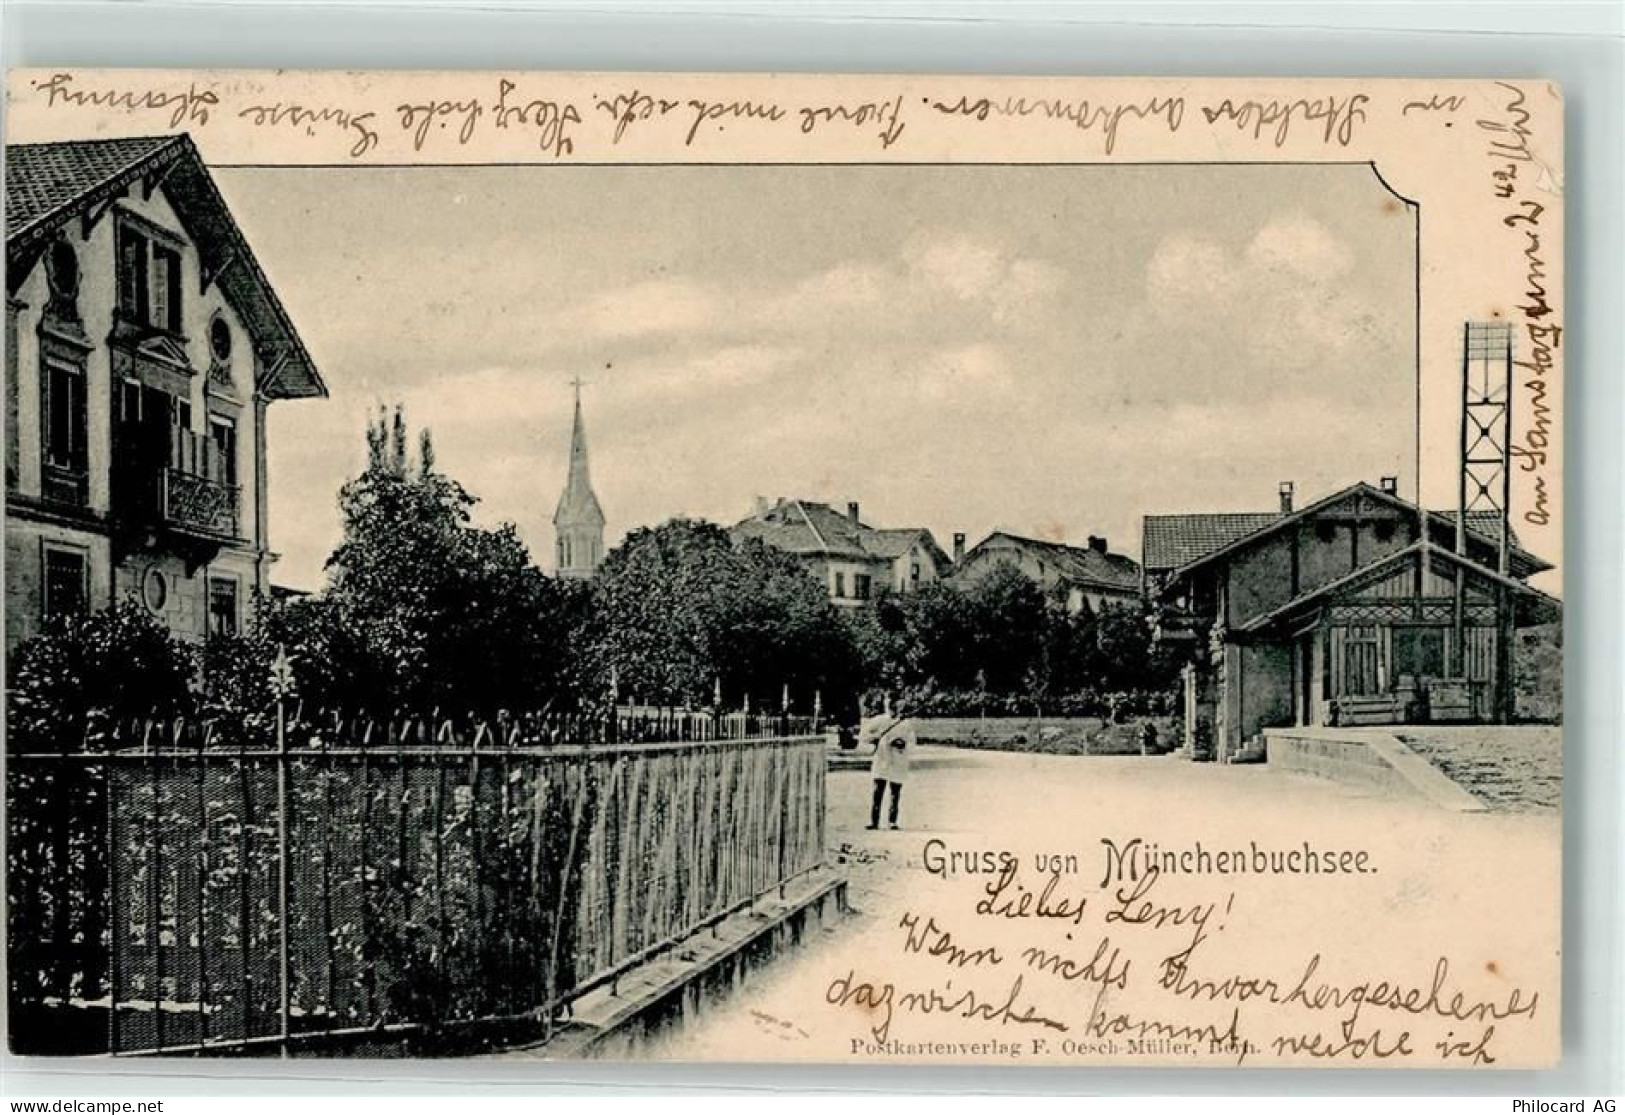 Gruss von Münchenbuchsee.
Liebes Leny!
Wenn nichts Unvorhergesehenes
dazwischen kommt, werde ich
am Samstag um 2
in Stalden ankommen. Freue mich sehr. Herzliche Grüsse
Postkartenverlag F. Oesch-Müller, Bern.
hosting competition: delcampe.net
Philocard AG